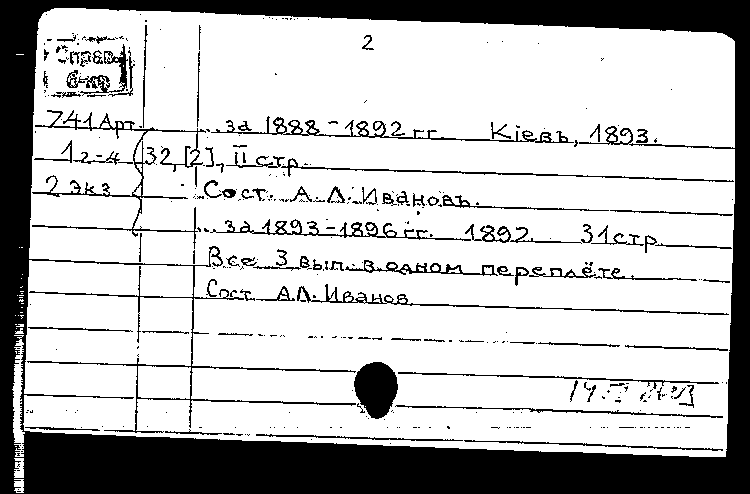 2
Справ.
б-ка
741 Арт. ...за 1888-1892 гг. Кіевъ, 1893.
1 2-4 32, [2], II стр.
2 экз Сост. А. Л. Ивановъ.
...за 1893-1896 гг. 1892. 31 стр.
Все 3 вып. в одном переплёте.
Сост. А.Л. Иванов